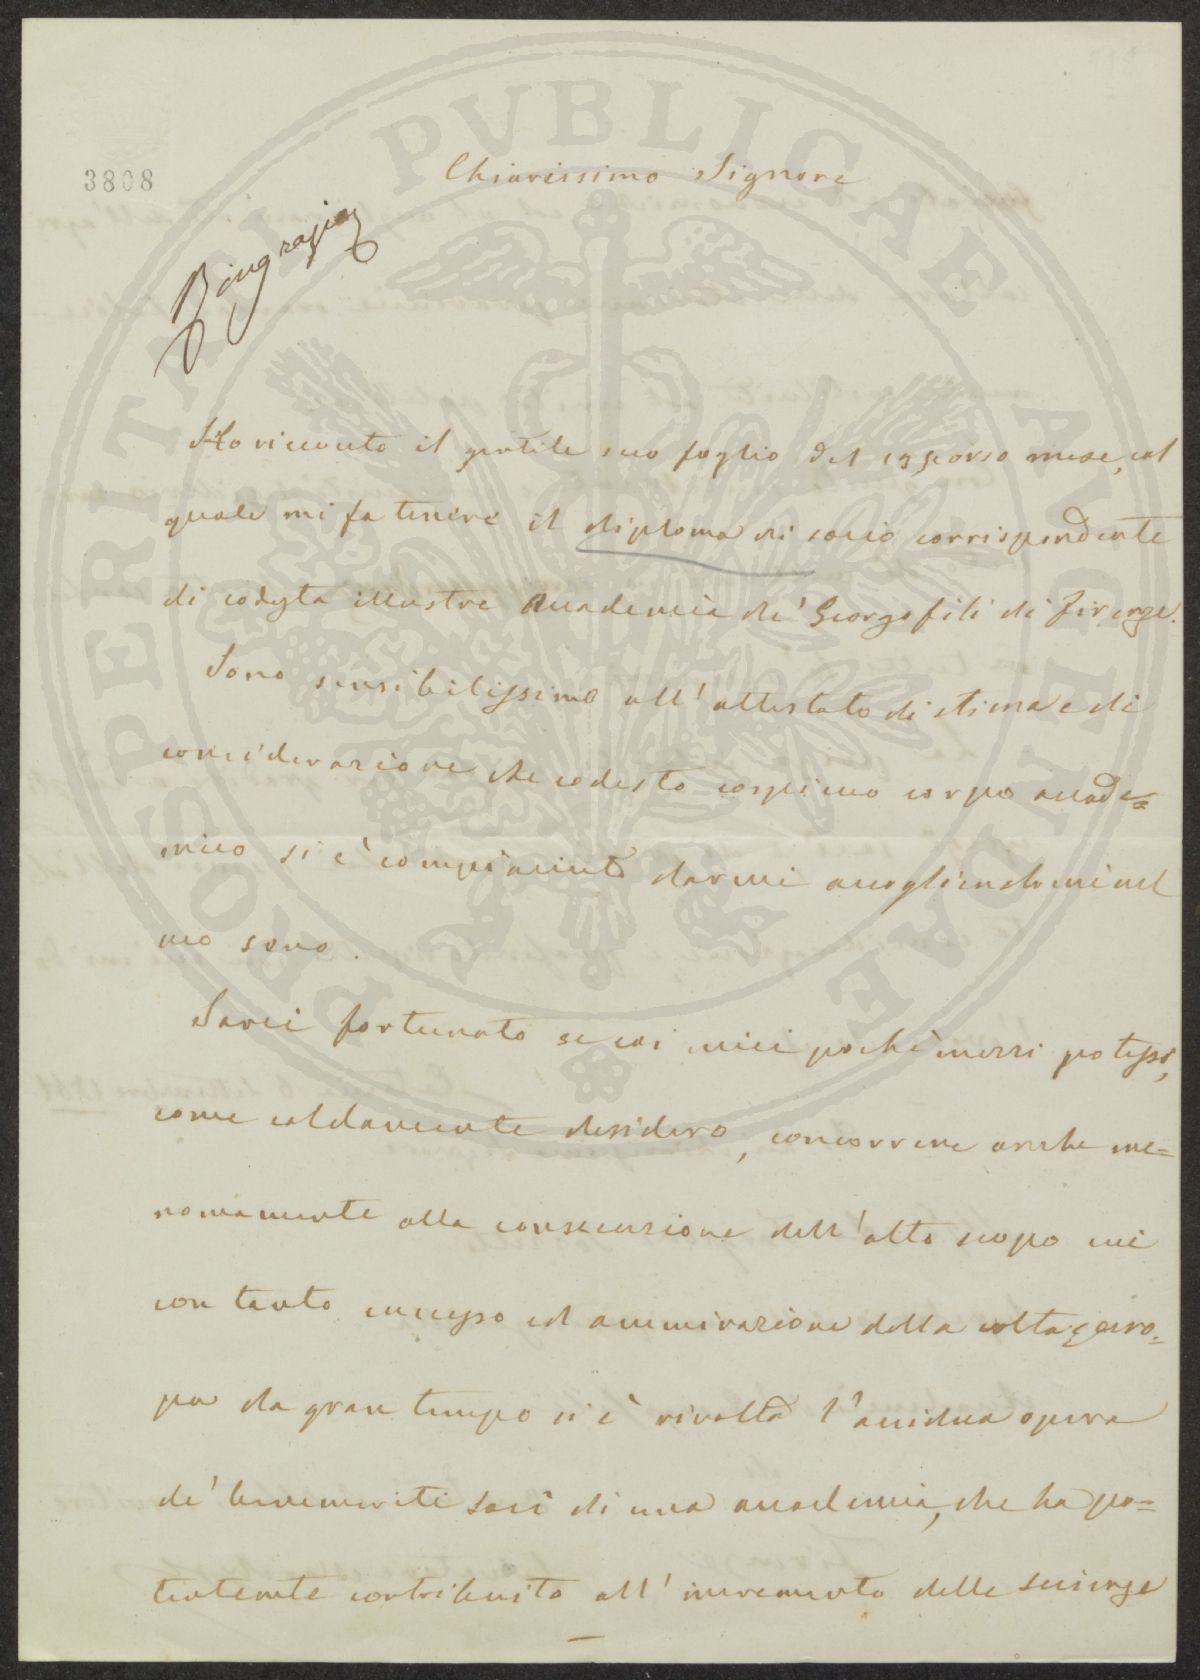 PROSPERITATI PVBLICAE AVGENDAE
3808
Chiarissimo Signore
Ringrazia
Ho ricevuto il gentile suo foglio del 19 scorso mese, col
quale mi fa tenere il diploma di socio corrispondente
di codesta illustre Accademia de' Georgofili di Firenze.
Sono sensibilissimo all'attestato di stima e di
considerazione che codesto cospicuo corpo accade=
mico si è compiaciuto darmi accogliendomi nel
suo seno.
Sarei fortunato se coi miei pochi mezzi potessi,
come caldamente desidero, concorrere anche me=
nomamente alla consecuzione dell'alto scopo cui
con tanto successo ed ammirazione della colta Euro=
pa da gran tempo si è rivolta l'assidua opera
de' benemeriti Soci di una accademia, che ha po=
tentemente contribuito all'incremento delle scienze